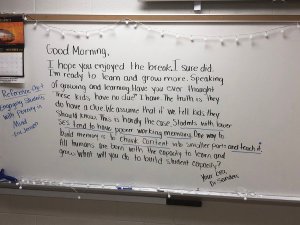 Good Morning,
I hope you enjoyed the break. I sure did.
I'm ready to learn and grow more. Speaking
of growing and learning. Have you ever thought
"these kids have no clue?" I have. The truth is they
do have a clue. We assume that if we tell kids they
should know. This is hardly the case. Students with lower
SES tend to have poorer working memory. One way to
build memory is to chunk content into smaller parts and teach it.
All humans are born with the capacity to learn and
grow. What will you do to build student capacity?
Your
Dr.
Reference Text
Engaging Students
with Poverty in
Mind
Eric Jensen